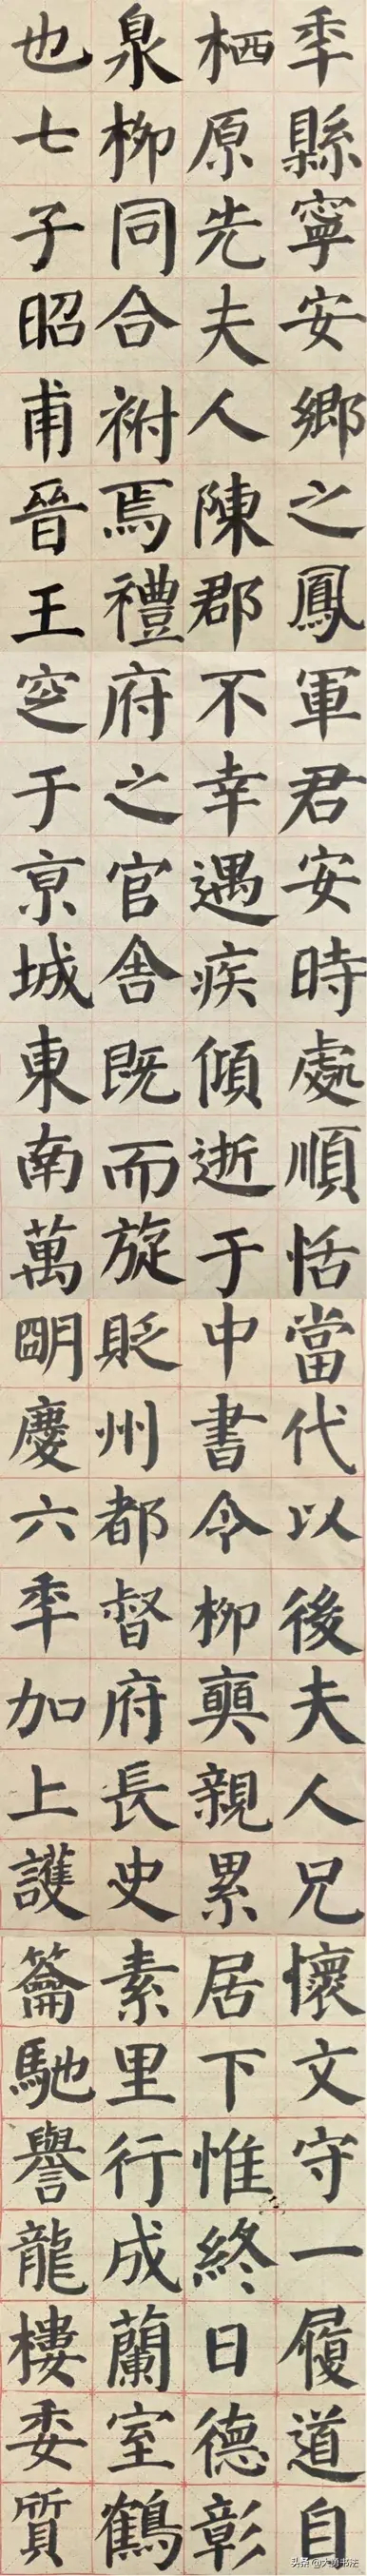 秊縣寧安鄉之鳳
栖原先夫人陳郡
泉柳同合祔焉禮
也七子昭甫晉王
軍君安時處順恬
不幸遇疾傾逝于
府之官舍既而旋
窆于亰城東南萬
當代以後夫人兄
中書令柳奭親累
貶州都督府長史
朙慶六秊加上護
懷文守一履道自
居下惟終日德彰
素里行成蘭室鶴
籥馳譽龍樓委質
头条